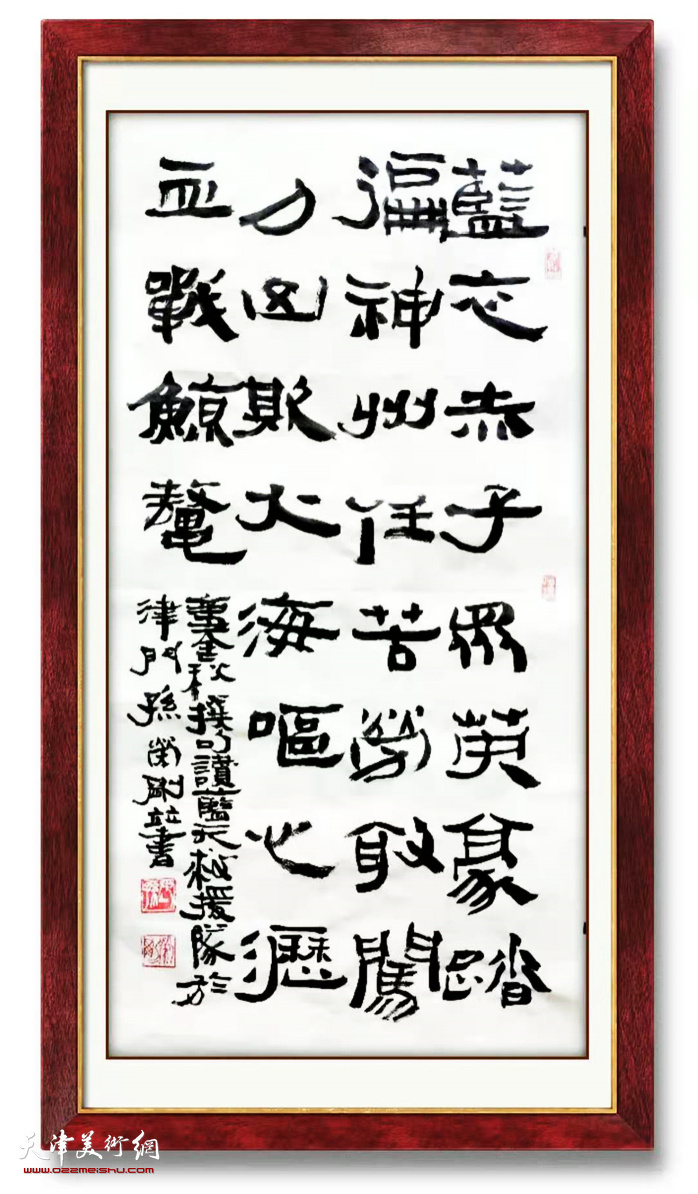 藍天赤子眾英豪踏
徧神州任苦勞敢闖
刀山欺火海嘔心瀝
血戰鯨鼇
秋撰句讚藍天救援隊於
津門孫剛並書
天津美術網
www.022meishu.com